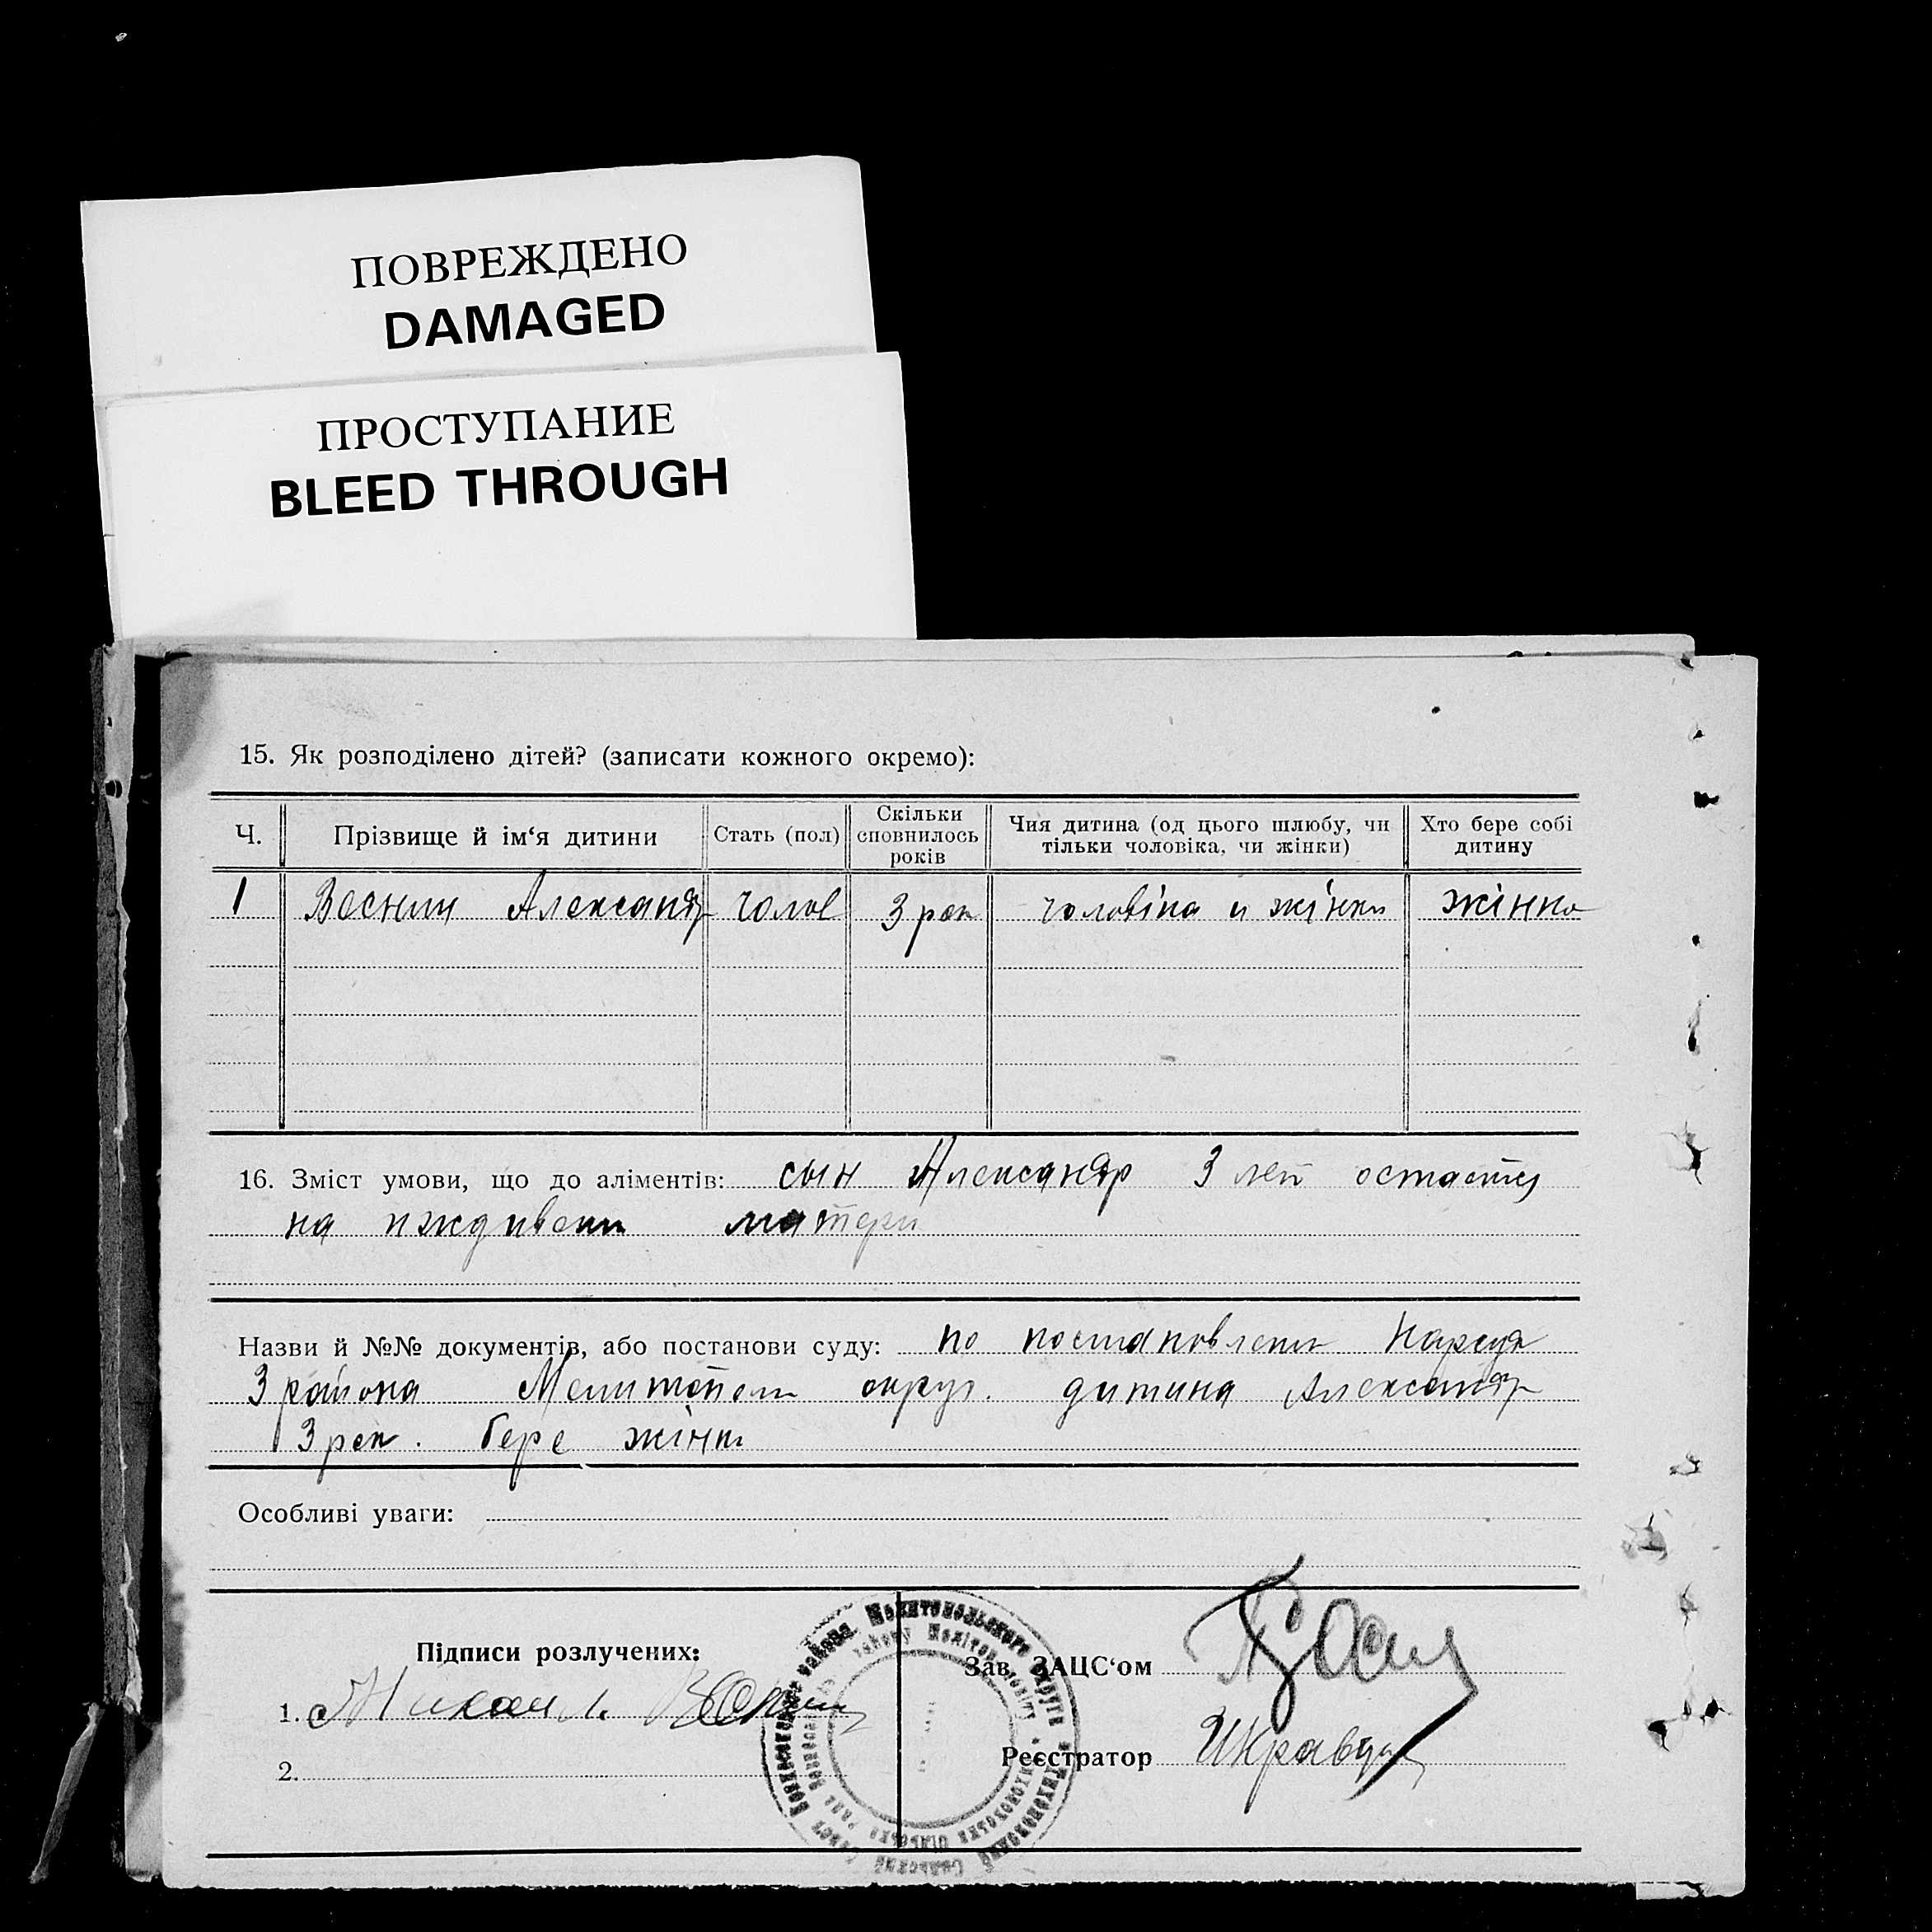 ПОВРЕЖДЕНО
DAMAGED
ПРОСТУПАНИЕ
BLEED THROUGH
15. Як розподілено дітей? (записати кожного окремо):
Ч. Прізвище й ім‘я дитини Стать (пол) Скільки сповнилось років Чия дитина (од цього шлюбу, чи тільки чоловіка, чи жінки) Хто бере собі дитину
1 Веснин Александр чолов 3 рок чоловіка и жінки жінка
16. Зміст умови, що до аліментів: сын Александр 3 лет остается
на иждивени матери
Назви й №№ документів, або постанови суду: по постановлени Нарсуда
3 района Мелитопол округ. дитина Александр
3 рок. бере жінка
Особливі уваги:
Підписи розлучених:
Зав. ЗАЦС‘ом
1. Михаил
Реєстратор Кравец
2.